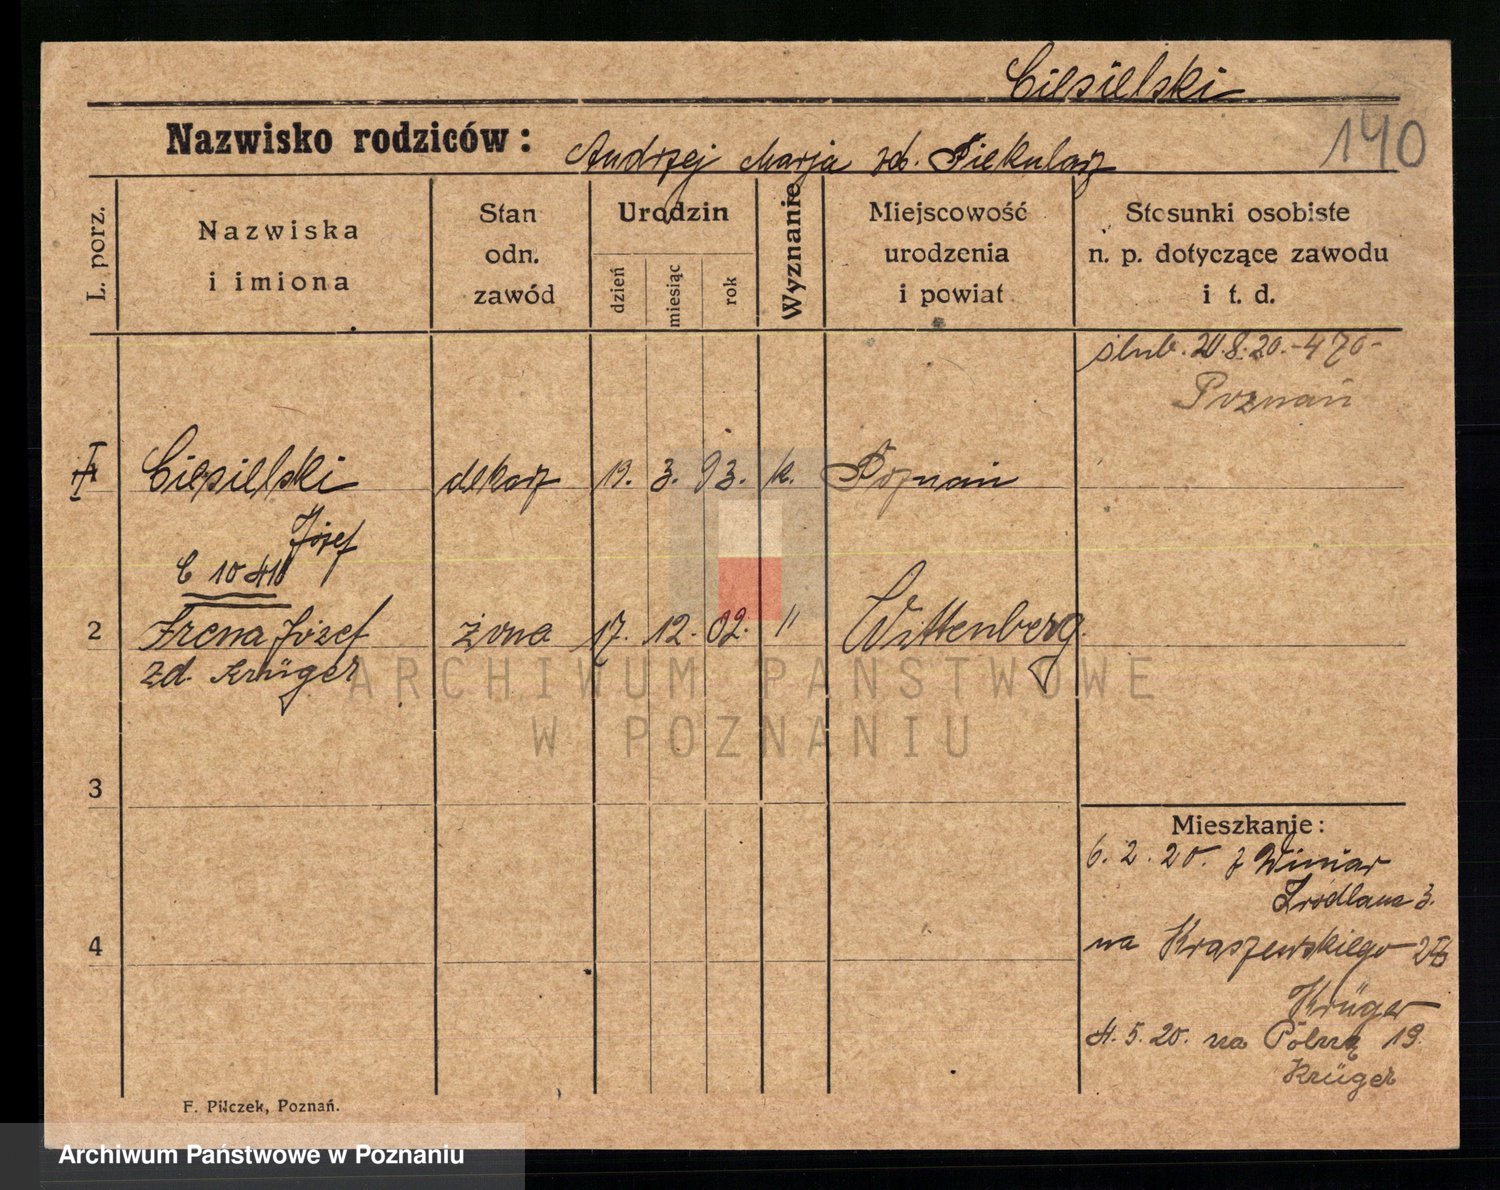 Ciesielski
140
Nazwisko rodziców: Andrzej Marja zd. Piekularz
L. porz.
Nazwiska i imiona
Stan odn. zawód
Urodzin
dzień
miesiąc
rok
Wyznanie
Miejscowość urodzenia i powiat
Stosunki osobiste n. p. dotyczące zawodu i t. d.
ślub. 20.8.20.-470-
Poznań
I Ciesielski dekarz 19. 3. 93. k. Poznań
Józef
2 Irena Józef żona 17. 12. 02. " Wittenberg.
zd. Krüger
3
4
Mieszkanie:
6. 2. 20. z Winiar
na Kraszewskiego
Krüger
4. 5. 20. na Polną 19.
Krüger
F. Pilczek, Poznań.
ARCHIWUM PAŃSTWOWE
W POZNANIU
Archiwum Państwowe w Poznaniu